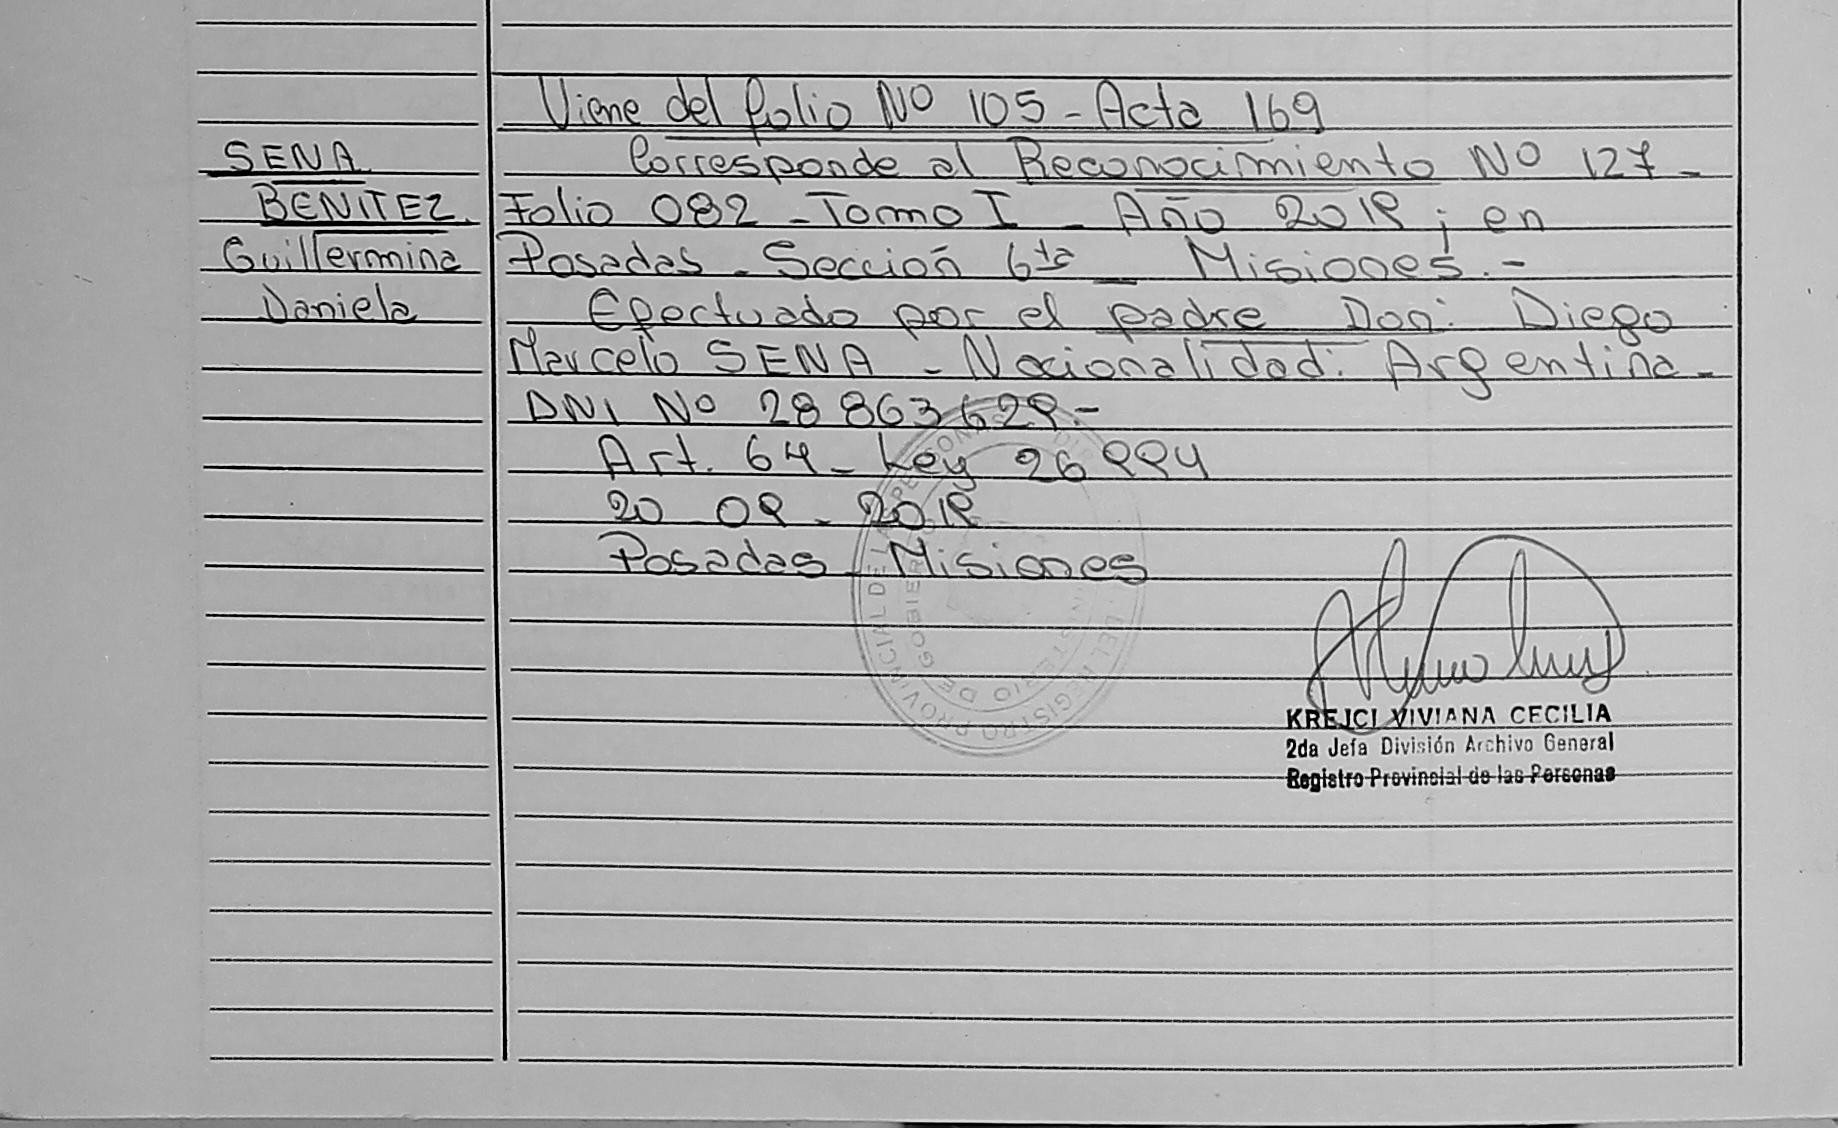 SENA
BENITEZ.
Guillermina
Daniela
Viene del folio Nº 105 - Acta 169
Corresponde al Reconocimiento Nº 127 -
Folio 082 - Tomo I - Año 2019 ; en
Posadas - Sección 6ta - Misiones.-
Efectuado por el padre Don: Diego
Marcelo SENA - Nacionalidad: Argentina -
DNI Nº 28 863 629.-
Art. 64 - Ley 26 994
20 09 - 2019
Posadas - Misiones
REGISTRO PROVINCIAL DE LAS PERSONAS
MINISTERIO DE GOBIERNO
KREJCI VIVIANA CECILIA
2da Jefa División Archivo General
Registro Provincial de las Personas